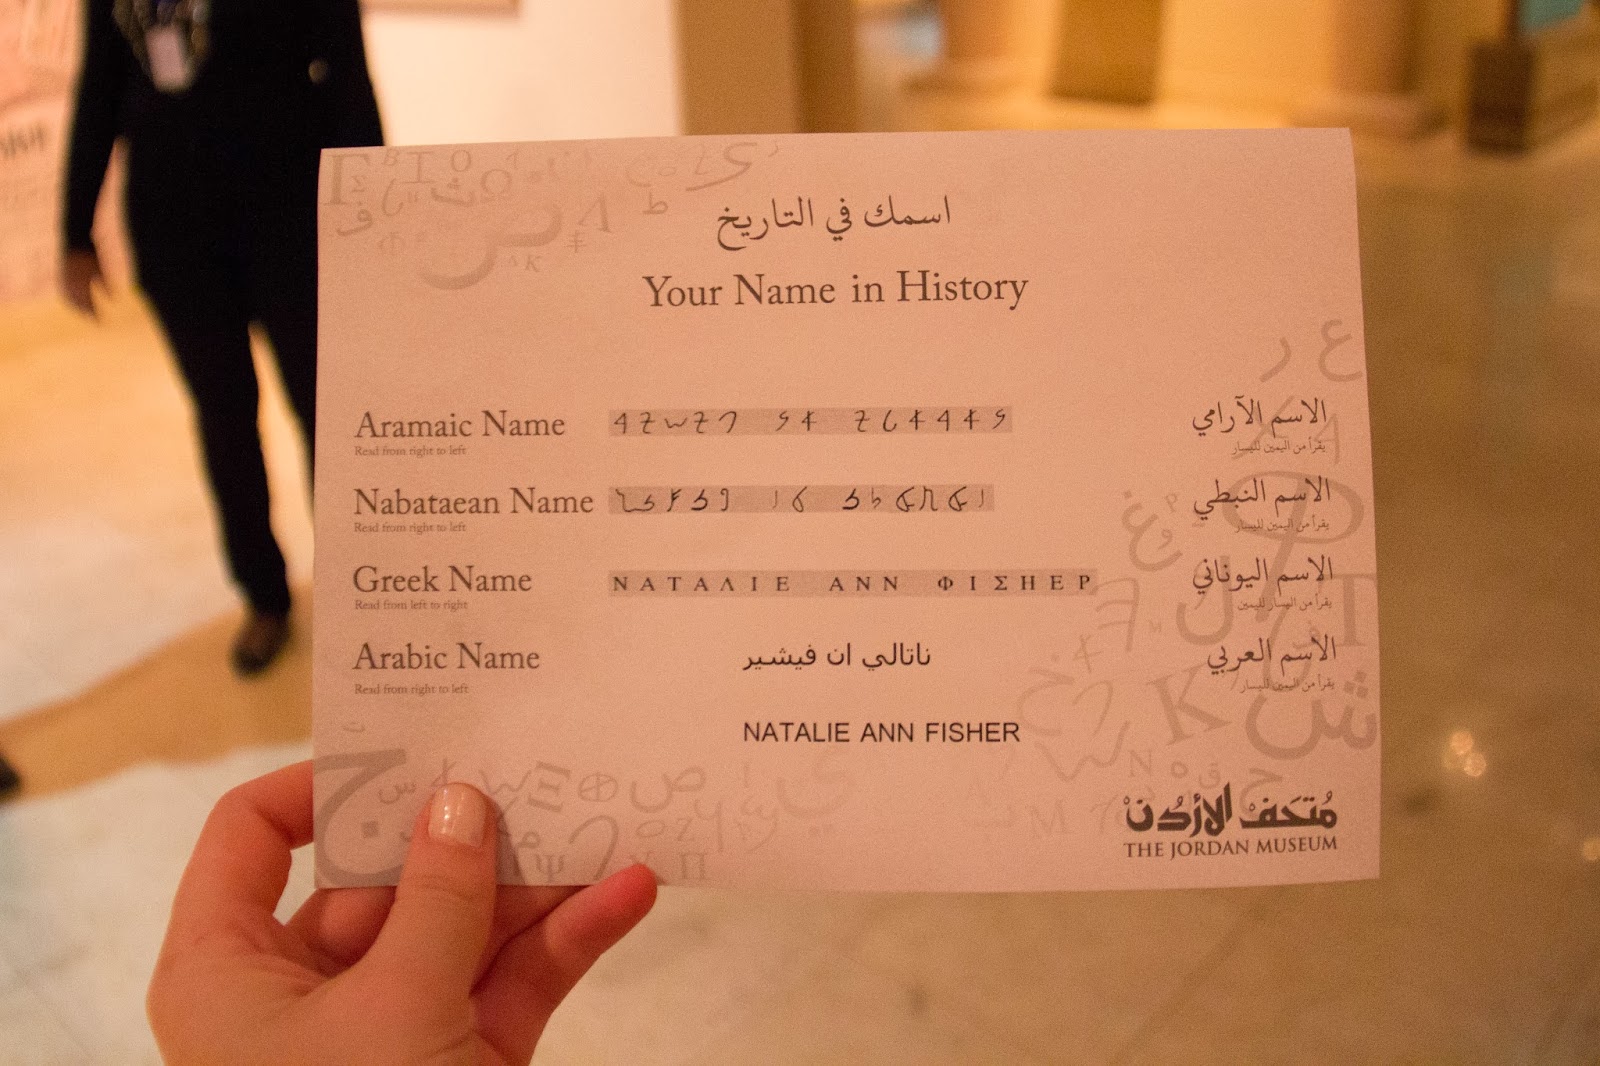 اسمك في التاريخ
Your Name in History
Aramaic Name
Read from right to left
الاسم الآرامي
يقرأ من اليمين لليسار
Nabataean Name
Read from right to left
الاسم النبطي
يقرأ من اليمين لليسار
Greek Name ΝΑΤΑΛΙΕ ΑΝΝ ΦΙΣΗΕΡ الاسم اليوناني
Read from left to right
يقرأ من اليسار لليمين
Arabic Name ناتالي ان فيشير الاسم العربي
Read from right to left
يقرأ من اليمين لليسار
NATALIE ANN FISHER
مُتحَف الأردُن
THE JORDAN MUSEUM